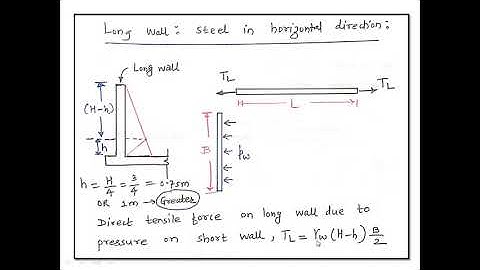 Long wall: steel in horizontal direction:
Long wall
TL
TL
L
(H-h)
h
B
pw
h = H/4 = 3/4 = 0.75m
OR 1m → Greater
Direct tensile force on long wall due to
pressure on short wall, TL = γw (H-h) B/2